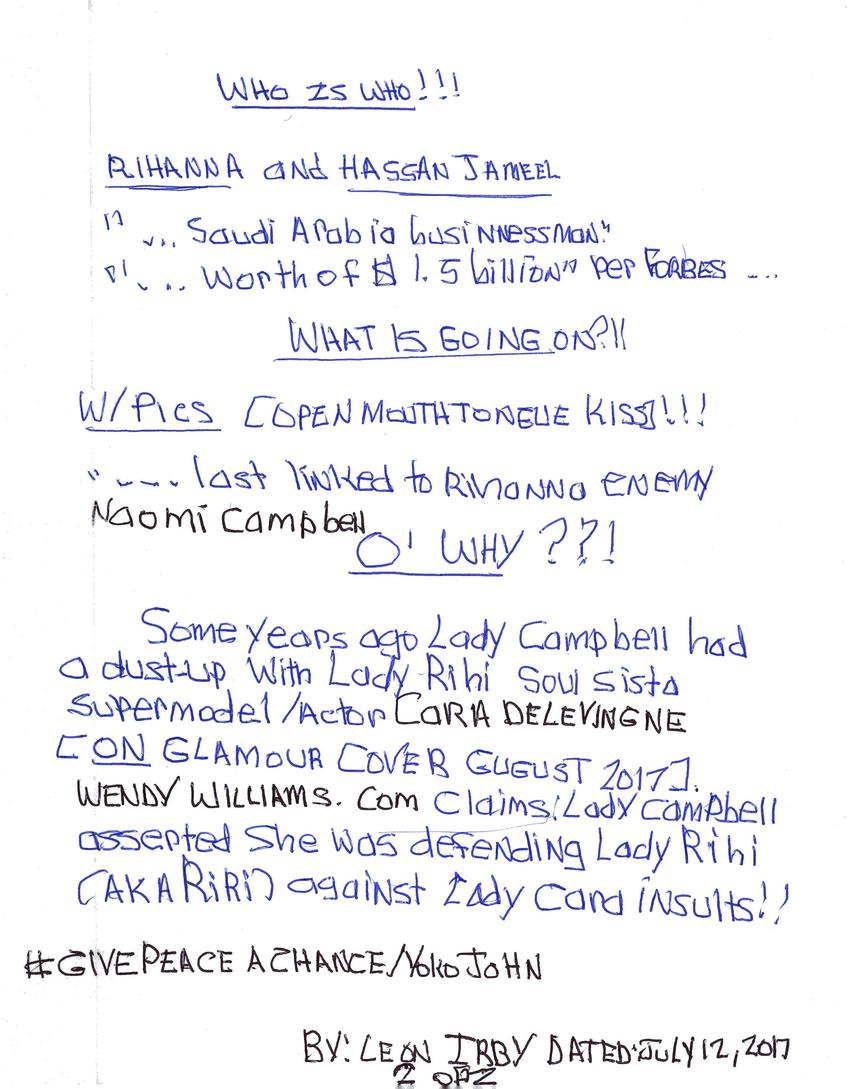 WHO IS WHO!!!
RIHANNA and HASSAN JAMEEL
" ... Saudi Arabia businnessman."
" ... Worth of $ 1.5 billion" per FORBES ...
WHAT IS GOING ON?!!
W/Pics [OPEN MOUTH TONGUE KISS]!!!
" .... last linked to Rihanna ENEMY
Naomi Campbell
O' WHY ??!
Some years ago Lady Campbell had
a dust-up With Lady Rihi Soul sista
supermodel/Actor CARA DELEVINGNE
[ON GLAMOUR COVER GUGUST 2017].
WENDY WILLIAMS. Com Claims: Lady Campbell
asserted She was defending Lady Rihi
(AKA RiRi) against Lady Cara insults!!
#GIVE PEACE A CHANCE/YOKO JOHN
BY: LEON IRBY DATED: JULY 12, 2017
2 OF 2